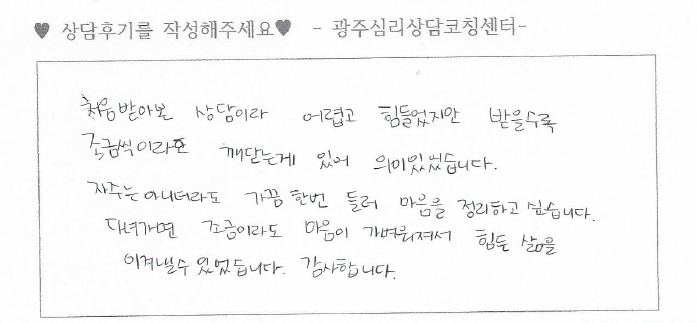 ♥ 상담후기를 작성해주세요♥ - 광주심리상담코칭센터-
처음받아본 상담이라 어렵고 힘들었지만 받을수록
조금씩이라도 깨닫는게 있어 의미있었습니다.
자주는아니더라도 가끔 한번 들러 마음을 정리하고 싶습니다.
다녀가면 조금이라도 마음이 가벼워져서 힘든 삶을
이겨낼수 있었습니다. 감사합니다.